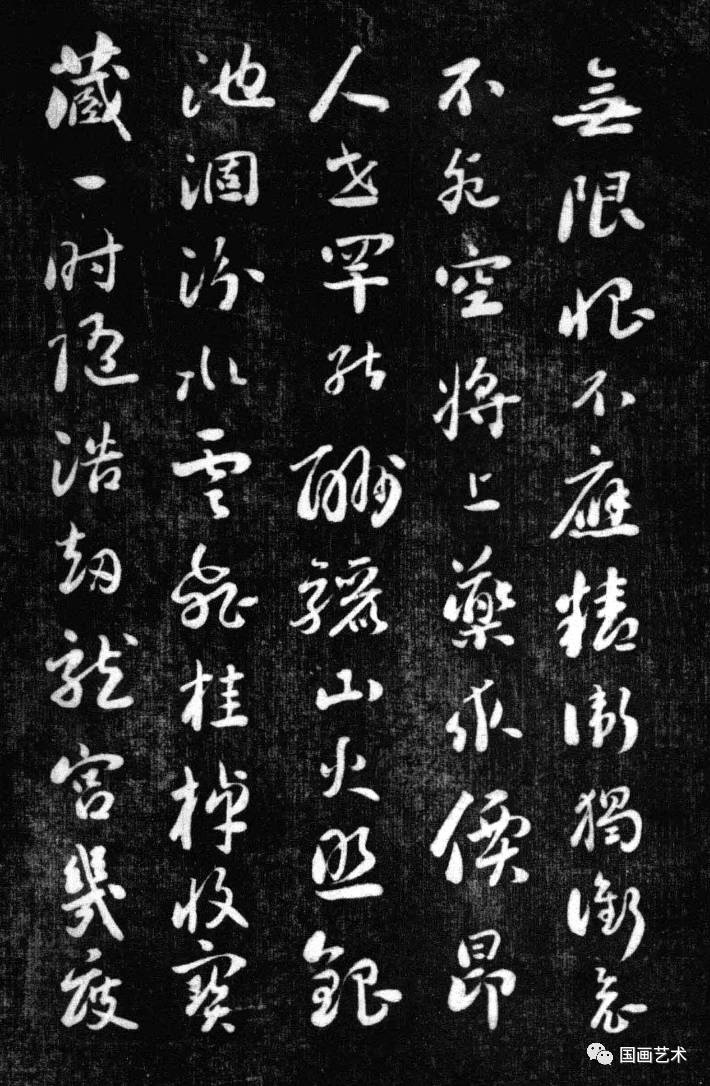 無限恨不應精衛獨銜
不死空將上藥求價昂
人世罕能酬驪山火照銀
池涸汾水雲飛桂棹收寶
藏一時隨浩劫龍宮幾度
国画艺术